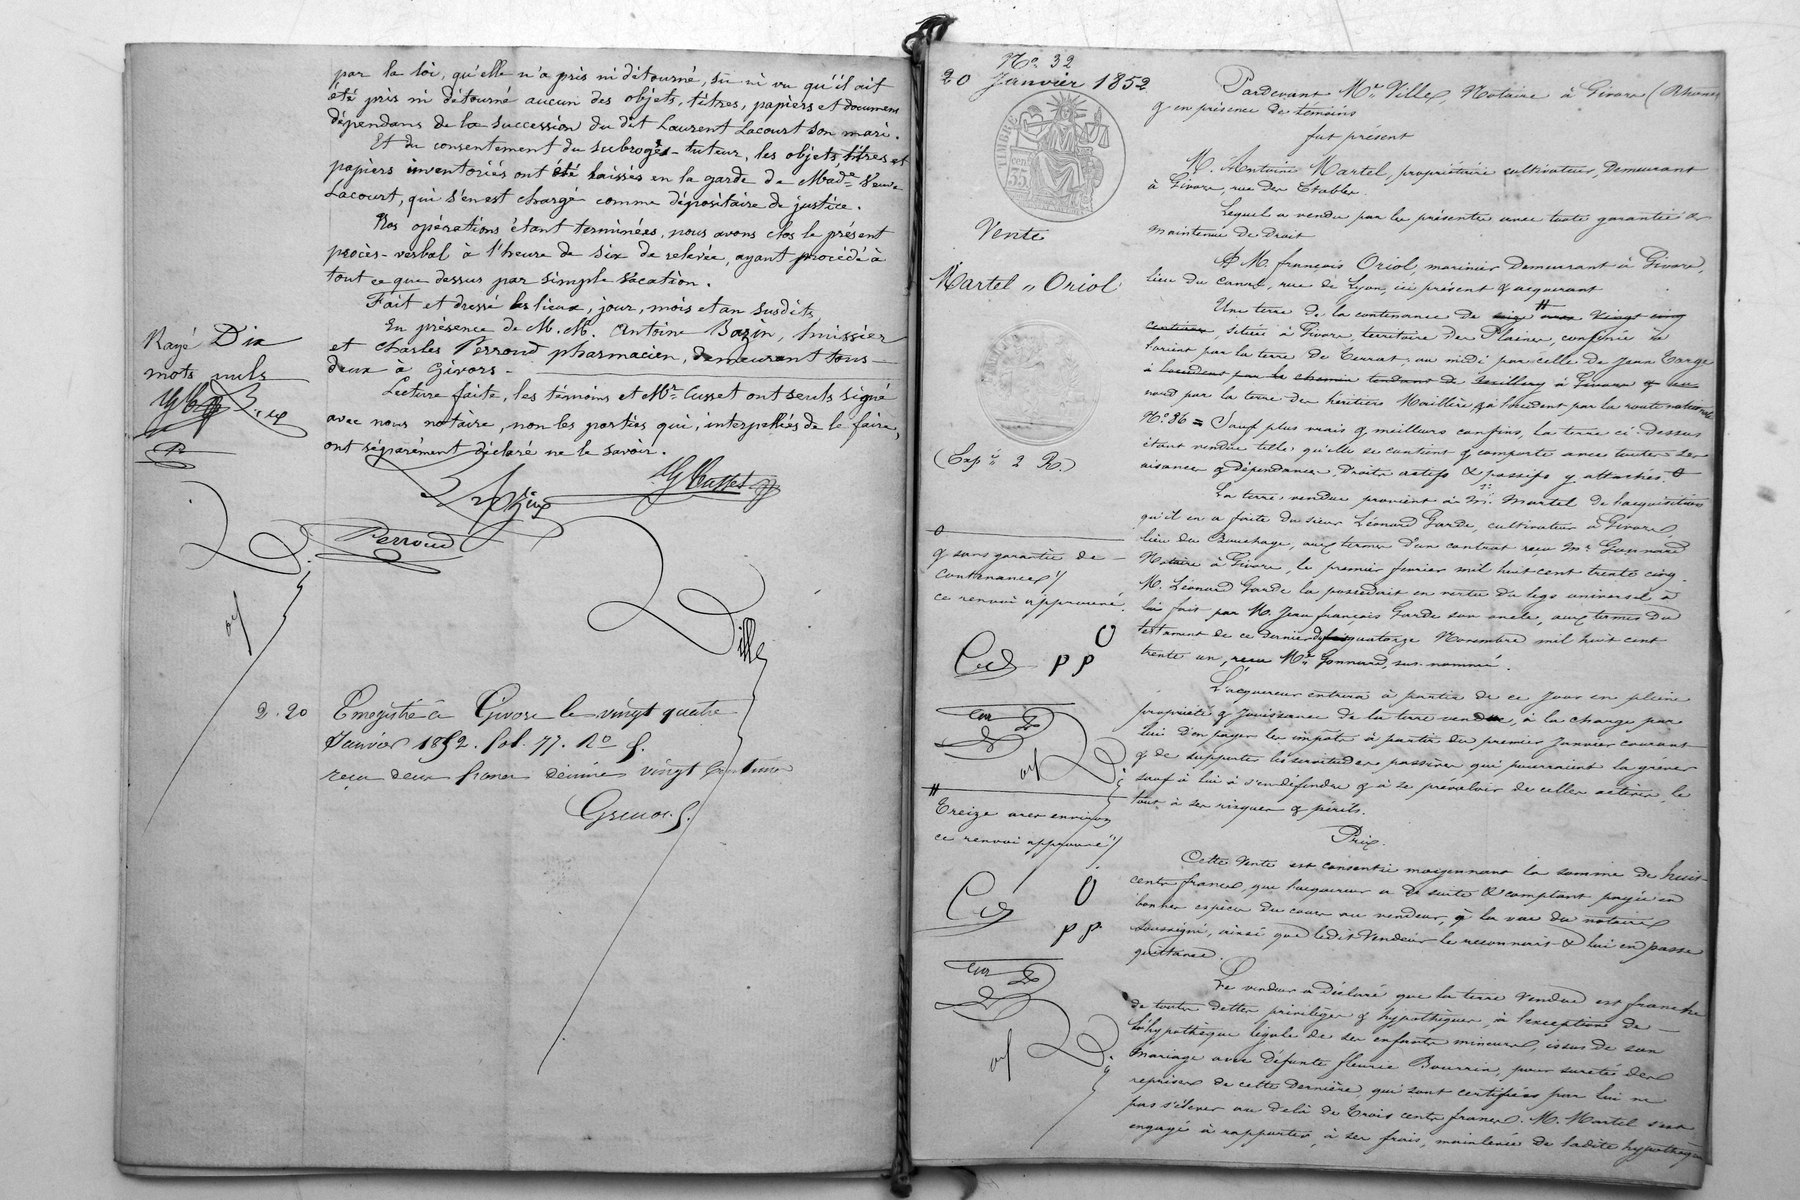 par la loi, qu'elle n'a pris ni détourné, su ni vu qu'il ait
été pris ni détourné aucun des objets, titres, papiers et documens
dépendans de la succession du dit Laurent Lacourt son mari.
Et du consentement du subrogé-tuteur, les objets, titres et
papiers inventoriés ont été laissés en la garde de Made Veuve
Lacourt, qui s'en est chargé comme dépositaire de justice.
Nos opérations étant terminées, nous avons clos le présent
procès-verbal à l'heure de six de relevée, ayant procédé à
tout ce que dessus par simple vacation.
Fait et dressé les lieux, jour, mois et an susdits
En présence de M.M. Antoine Bazin, huissier
et Charles Perroud pharmacien, demeurant tous
deux à Givors -
Lecture faite, les témoins et Mr Cusset ont seuls signé
avec nous notaire, non les parties qui, interpellées de le faire,
ont séparément déclaré ne le savoir.
Rayé Dix
mots nuls
Perroud
Ville
2.20
Enregistré à Givors le vingt quatre
Janvier 1852. fol. 77. Ro
reçu deux francs décime vingt centimes
No 32
20 Janvier 1852
TIMBRE
35 cent
Vente
Martel " Oriol
(Exp. 2 R.)
Pardevant Me Ville, Notaire à Givors (Rhône)
& en présence de témoins
fut présent
M. Antoine Martel, propriétaire cultivateur, Demeurant
à Givors, rue des Etables
Lequel a vendu par les présentes avec toute garantie de
maintenue de Droit
A M. françois Oriol, marinier Demeurant à Givors,
lieu du Canal, rue de Lyon, ici présent & acquérant
Une terre de la contenance de vingt cinq
centiares, située à Givors, territoire des Plaines, confinée à
l'orient par la terre de Terrat; au midi par celle de Jean Targe
à l'occident par le chemin tendant de à Givors & au
nord par la terre des héritiers Maillère & à l'occident par la route nationale
No 86 = Sauf plus vrais & meilleurs confins, la terre ci-dessus
étant vendue telle qu'elle se contient & comporte avec toutes ses
aisances & dépendances, Droits actifs & passifs y attachés.
La terre vendue provient à Mr Martel de l'acquisition
qu'il en a faite du sieur Léonard Garde, cultivateur à Givors,
lieu du Bouchage, aux termes d'un contrat reçu Me Gonnard
Notaire à Givors, le premier fevrier mil huit cent trente cinq.
M. Léonard Garde la possédait en vertu du legs universel à
lui fait par M. Jean françois Garde son oncle, aux termes du
testament de ce dernier du quatorze Novembre mil huit cent
trente un, reçu Me Gonnard, sus-nommé.
& sans garantie de
contenance
ce renvoi approuvé.
L'acquéreur entrera à partir de ce jour en pleine
propriété & jouissance de la terre vendue, à la charge par
lui d'en payer les impôts à partir du premier janvier courant
& de supporter les servitudes passives qui pourraient la gréver
sauf à lui à s'en défendre & à se prévaloir de celles actives, le
tout à ses risques & périls.
Treize ares environ
ce renvoi approuvé
Prix.
Cette Vente est consentie moyennant la somme de huit-
cents francs, que l'acquéreur a de suite & comptant payée en
bonnes espèces du cours au vendeur, à la vue du notaire
soussigné, ainsi que ledit Vendeur le reconnait & lui en passe
quittance.
Le vendeur a Déclaré que la terre Vendue est franche
de toutes dettes privilèges & hypothèques, à l'exception de
l'hypothèque légale de ses enfants mineurs, issus de son
mariage avec défunte fleurie Bourrin, pour sureté des
reprises de cette Dernière, qui sont certifiées par lui ne
pas s'élever au delà de Trois cents francs. M. Martel s'est
engagé à rapporter, à ses frais, mainlevée de ladite hypothèque